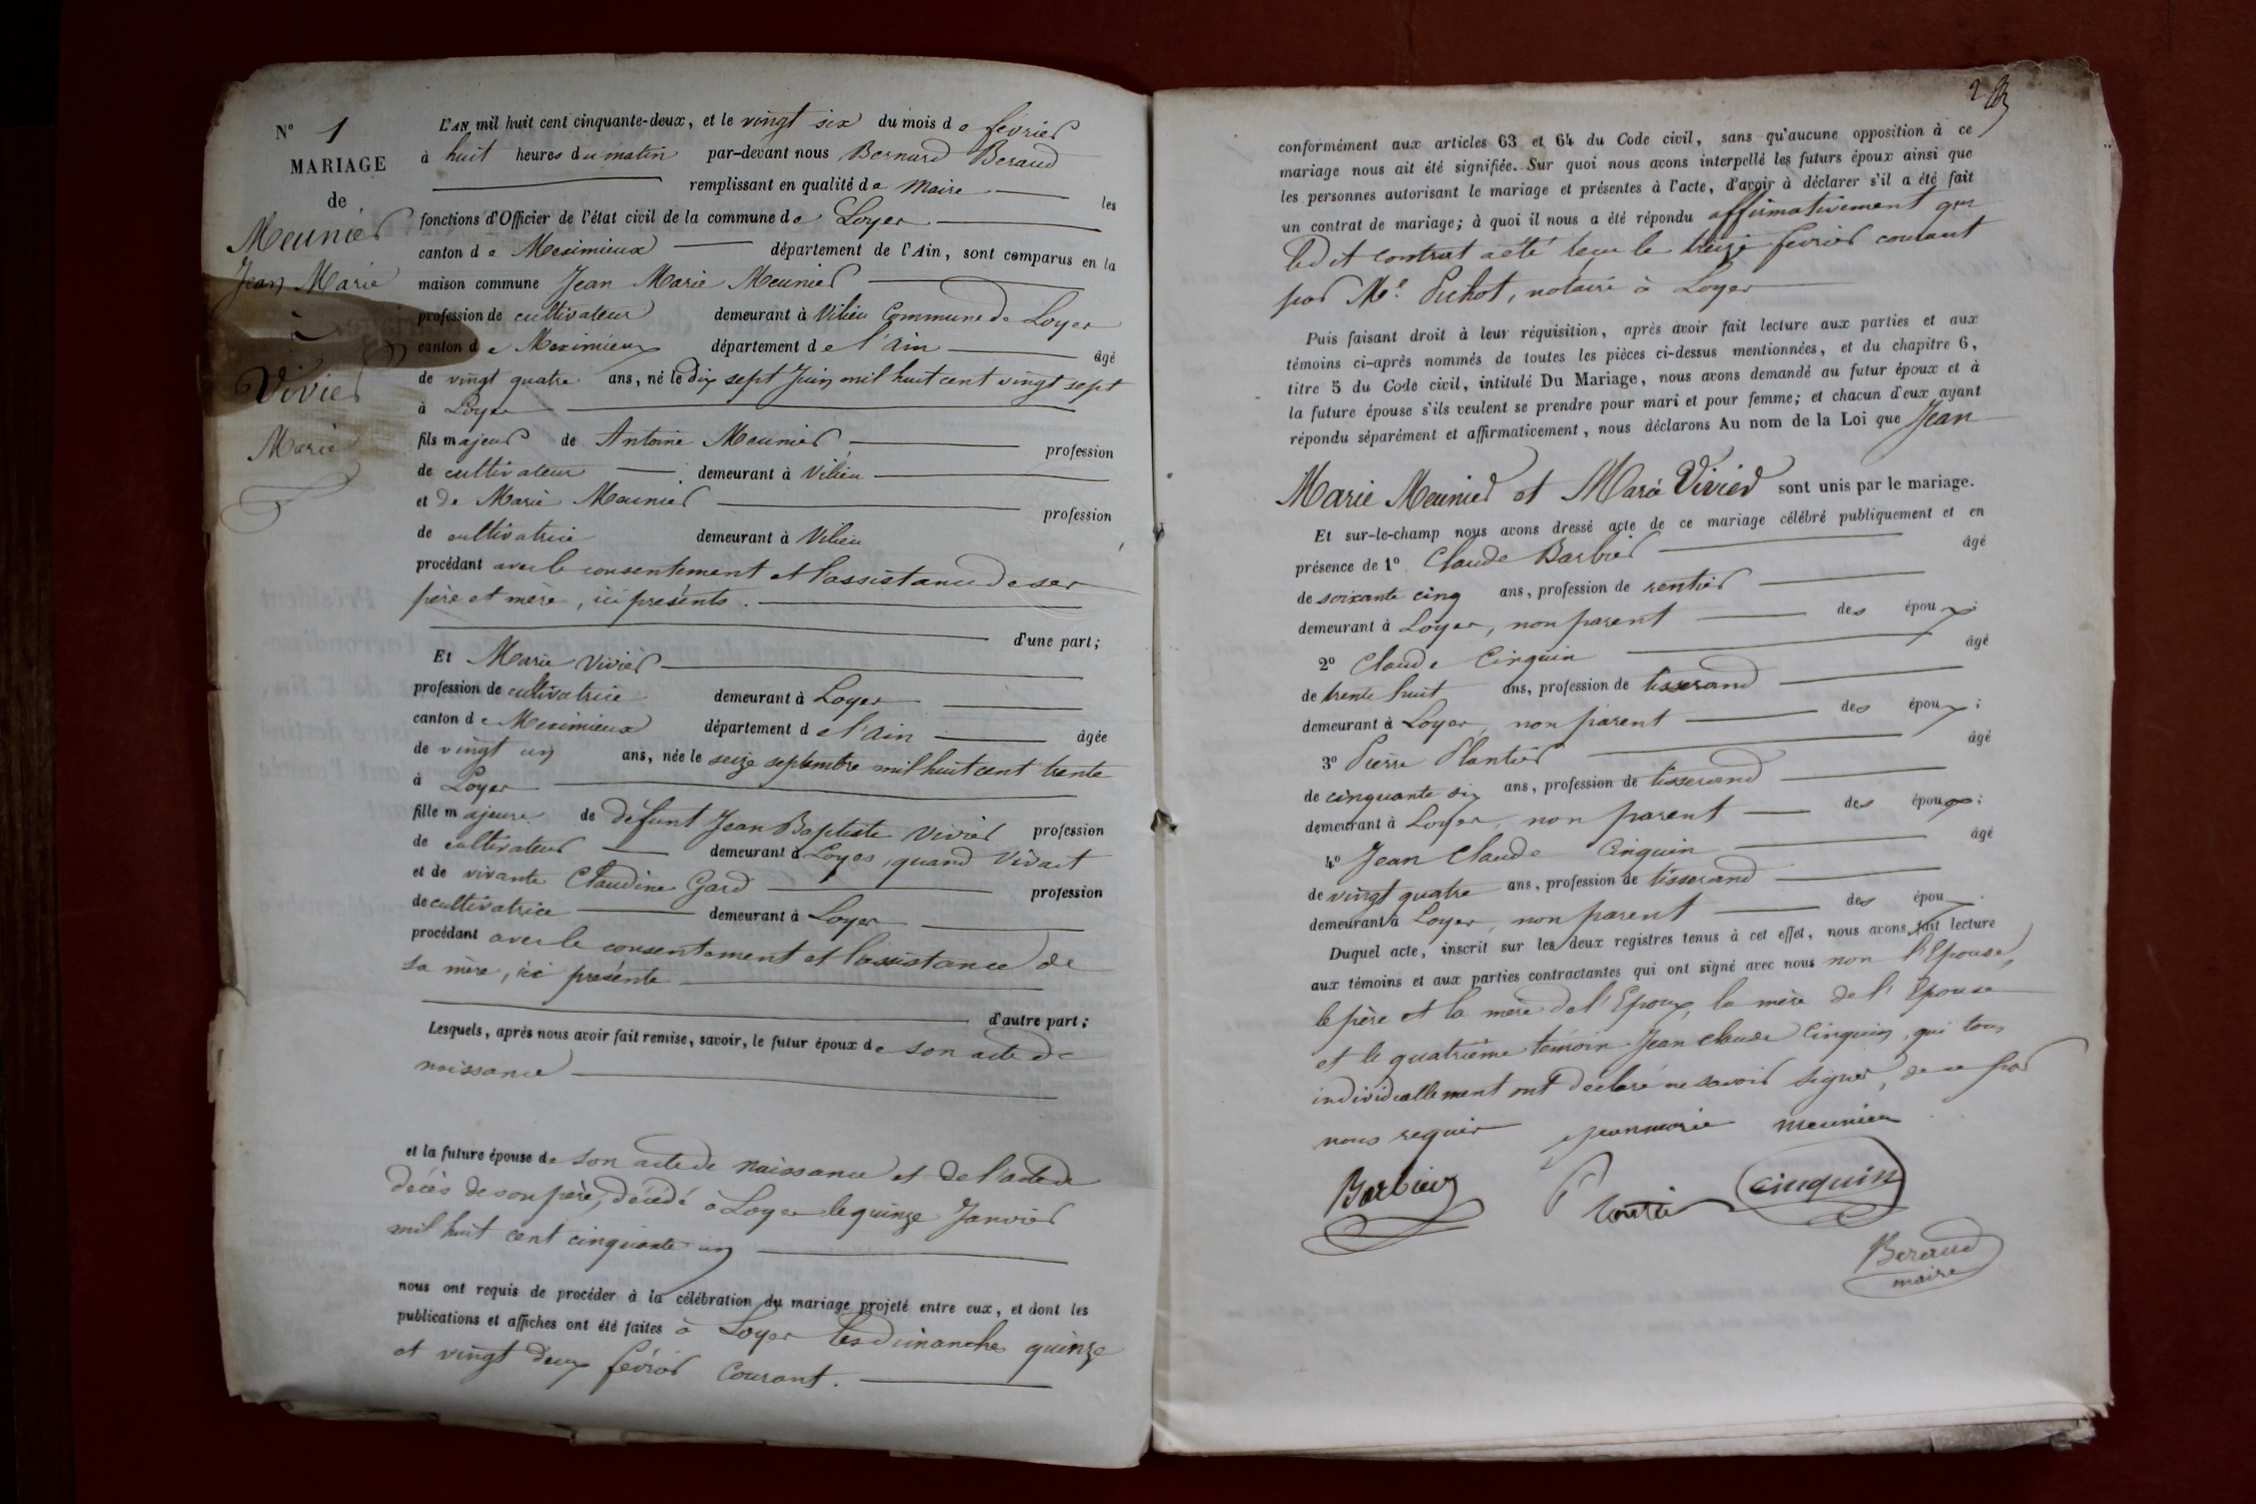 N° 1
MARIAGE
de
Meunier
Jean Marie
à
Vivier
Marie
L'AN mil huit cent cinquante-deux, et le vingt six du mois de février
à huit heures du matin par-devant nous Bernard Beraud
remplissant en qualité de Maire les
fonctions d'Officier de l'état civil de la commune de Loyes
canton de Meximieux département de l'Ain, sont comparus en la
maison commune Jean Marie Meunier
profession de cultivateur demeurant à Vilieu Commune de Loyes
canton de Meximieux département de l'Ain âgé
de vingt quatre ans, né le dix sept Juin mil huit cent vingt sept
à Loyes
fils majeur de Antoine Meunier profession
de cultivateur demeurant à Vilieu
et de Marie Meunier profession
de cultivatrice demeurant à Vilieu
procédant avec le consentement et l'assistance de ses
père et mère, ici présents.
d'une part;
Et Marie Vivier
profession de cultivatrice demeurant à Loyes
canton de Meximieux département de l'Ain âgée
de vingt un ans, née le seize septembre mil huit cent trente
à Loyes
fille majeure de défunt Jean Baptiste Vivier profession
de cultivateur demeurant à Loyes, quand vivait
et de vivante Claudine Gard profession
de cultivatrice demeurant à Loyes
procédant avec le consentement et l'assistance de
sa mère, ici présente
d'autre part;
Lesquels, après nous avoir fait remise, savoir, le futur époux de son acte de
naissance
et la future épouse de son acte de naissance et de l'acte de
décès de son père, décédé à Loyes le quinze Janvier
mil huit cent cinquante un
nous ont requis de procéder à la célébration du mariage projeté entre eux, et dont les
publications et affiches ont été faites à Loyes les dimanches quinze
et vingt deux février courant.
conformément aux articles 63 et 64 du Code civil, sans qu'aucune opposition à ce
mariage nous ait été signifiée. Sur quoi nous avons interpellé les futurs époux ainsi que
les personnes autorisant le mariage et présentes à l'acte, d'avoir à déclarer s'il a été fait
un contrat de mariage; à quoi il nous a été répondu affirmativement que
ledit contrat a été reçu le treize février courant
par Me. Pichot, notaire à Loyes
Puis faisant droit à leur réquisition, après avoir fait lecture aux parties et aux
témoins ci-après nommés de toutes les pièces ci-dessus mentionnées, et du chapitre 6,
titre 5 du Code civil, intitulé Du Mariage, nous avons demandé au futur époux et à
la future épouse s'ils veulent se prendre pour mari et pour femme; et chacun d'eux ayant
répondu séparément et affirmativement, nous déclarons Au nom de la Loi que Jean
Marie Meunier et Marie Vivier sont unis par le mariage.
Et sur-le-champ nous avons dressé acte de ce mariage célébré publiquement et en
présence de 1° Claude Barbier âgé
de soixante cinq ans, profession de rentier
demeurant à Loyes, non parent des époux;
2° Claude Cinquin âgé
de trente huit ans, profession de tisserand
demeurant à Loyes, non parent des époux;
3° Pierre Plantier âgé
de cinquante six ans, profession de tisserand
demeurant à Loyes, non parent des époux;
4° Jean Claude Cinquin âgé
de vingt quatre ans, profession de tisserand
demeurant à Loyes, non parent des époux.
Duquel acte, inscrit sur les deux registres tenus à cet effet, nous avons fait lecture
aux témoins et aux parties contractantes qui ont signé avec nous non l'Epouse,
le père et la mère de l'Epoux, la mère de l'Epouse
et le quatrième témoin Jean Claude Cinquin, qui tous
individuellement ont déclaré ne savoir signer, de ce par
nous requis jeanmarie meunier
Barbier Cinquin
Beraud
maire